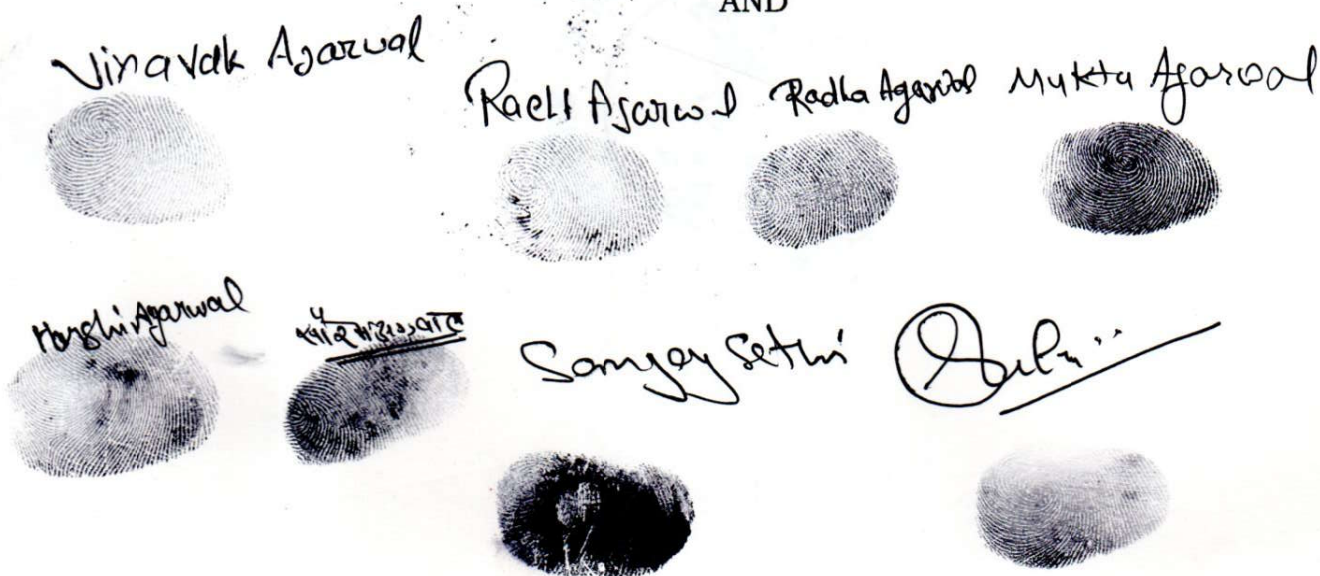 AND
Vinayak Agarwal
Rachi Agarwal Radha Agarwal Mukta Agarwal
Harshi Agarwal
Sanjay Sethi